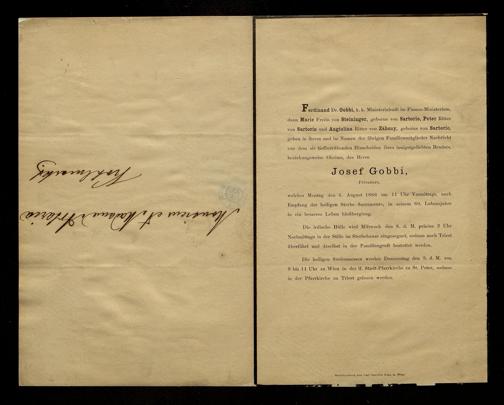 Monsieur et Madame Artaria
Kohlmarkt
Ferdinand Dr. Gobbi, k. k. Ministerialrath im Finanz-Ministerium,
dann Marie Freiin von Steininger, geborene von Sartorio, Peter Ritter
von Sartorio und Angiolina Ritter von Záhony, geborene von Sartorio,
geben in ihrem und im Namen der übrigen Familienmitglieder Nachricht
von dem sie tiefbetrübenden Hinscheiden ihres innigstgeliebten Bruders,
beziehungsweise Oheims, des Herrn
Josef Gobbi,
Privatiers,
welcher Montag den 6. August 1888 um 11 Uhr Vormittags, nach
Empfang der heiligen Sterbe-Sacramente, in seinem Lebensjahre
in ein besseres Leben hinüberging.
Die irdische Hülle wird Mittwoch den 8. d. M. präcise 3 Uhr
Nachmittags in der Stille im Sterbehause eingesegnet, sodann nach Triest
überführt und daselbst in der Familiengruft bestattet werden.
Die heiligen Seelenmessen werden Donnerstag den 9. d. M. von
9 bis 11 Uhr zu Wien in der Stadt-Pfarrkirche zu St. Peter, sodann
in der Pfarrkirche zu Triest gelesen werden.